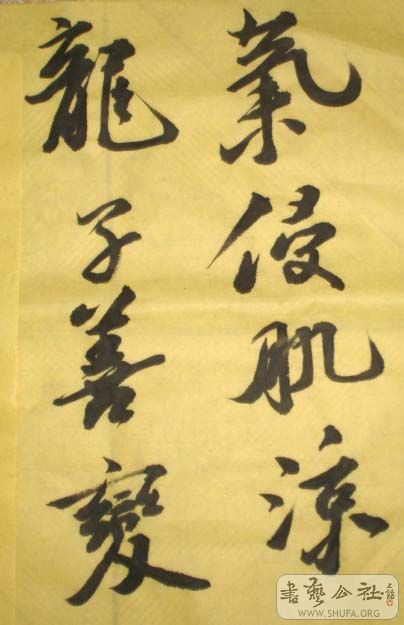 氣侵肌涼
龍子善變
書藝公社
WWW.SHUFA.ORG